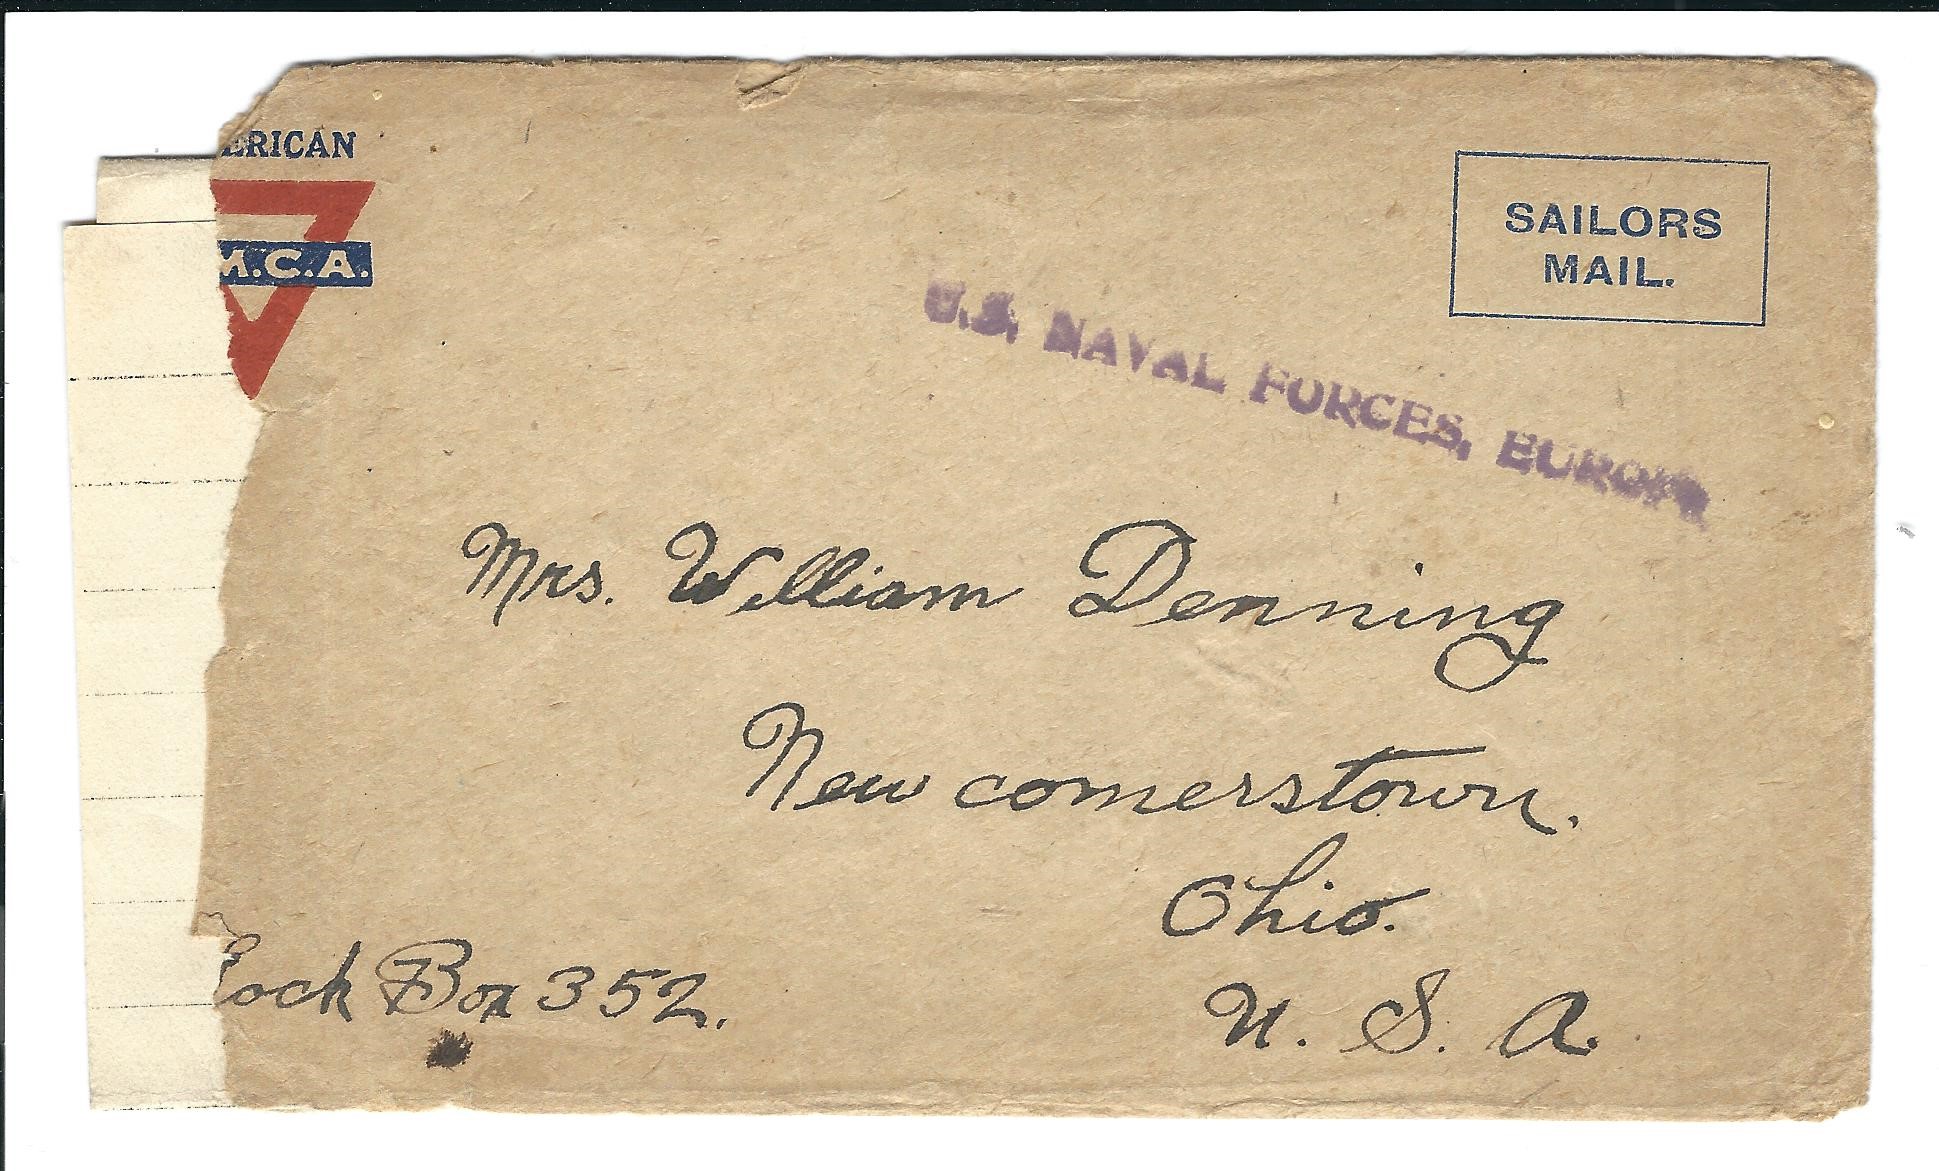 ERICAN
M.C.A.
SAILORS
MAIL.
U.S. NAVAL FORCES, EUROPE
Mrs. William Denning
Newcomerstown.
Ohio.
U. S. A.
Lock Box 352.